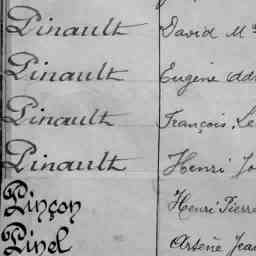 Pinault David M
Pinault Eugène Ad
Pinault François, Le
Pinault Henri Jo
Pinçon Henri Pierre
Pinel Arsène Jea